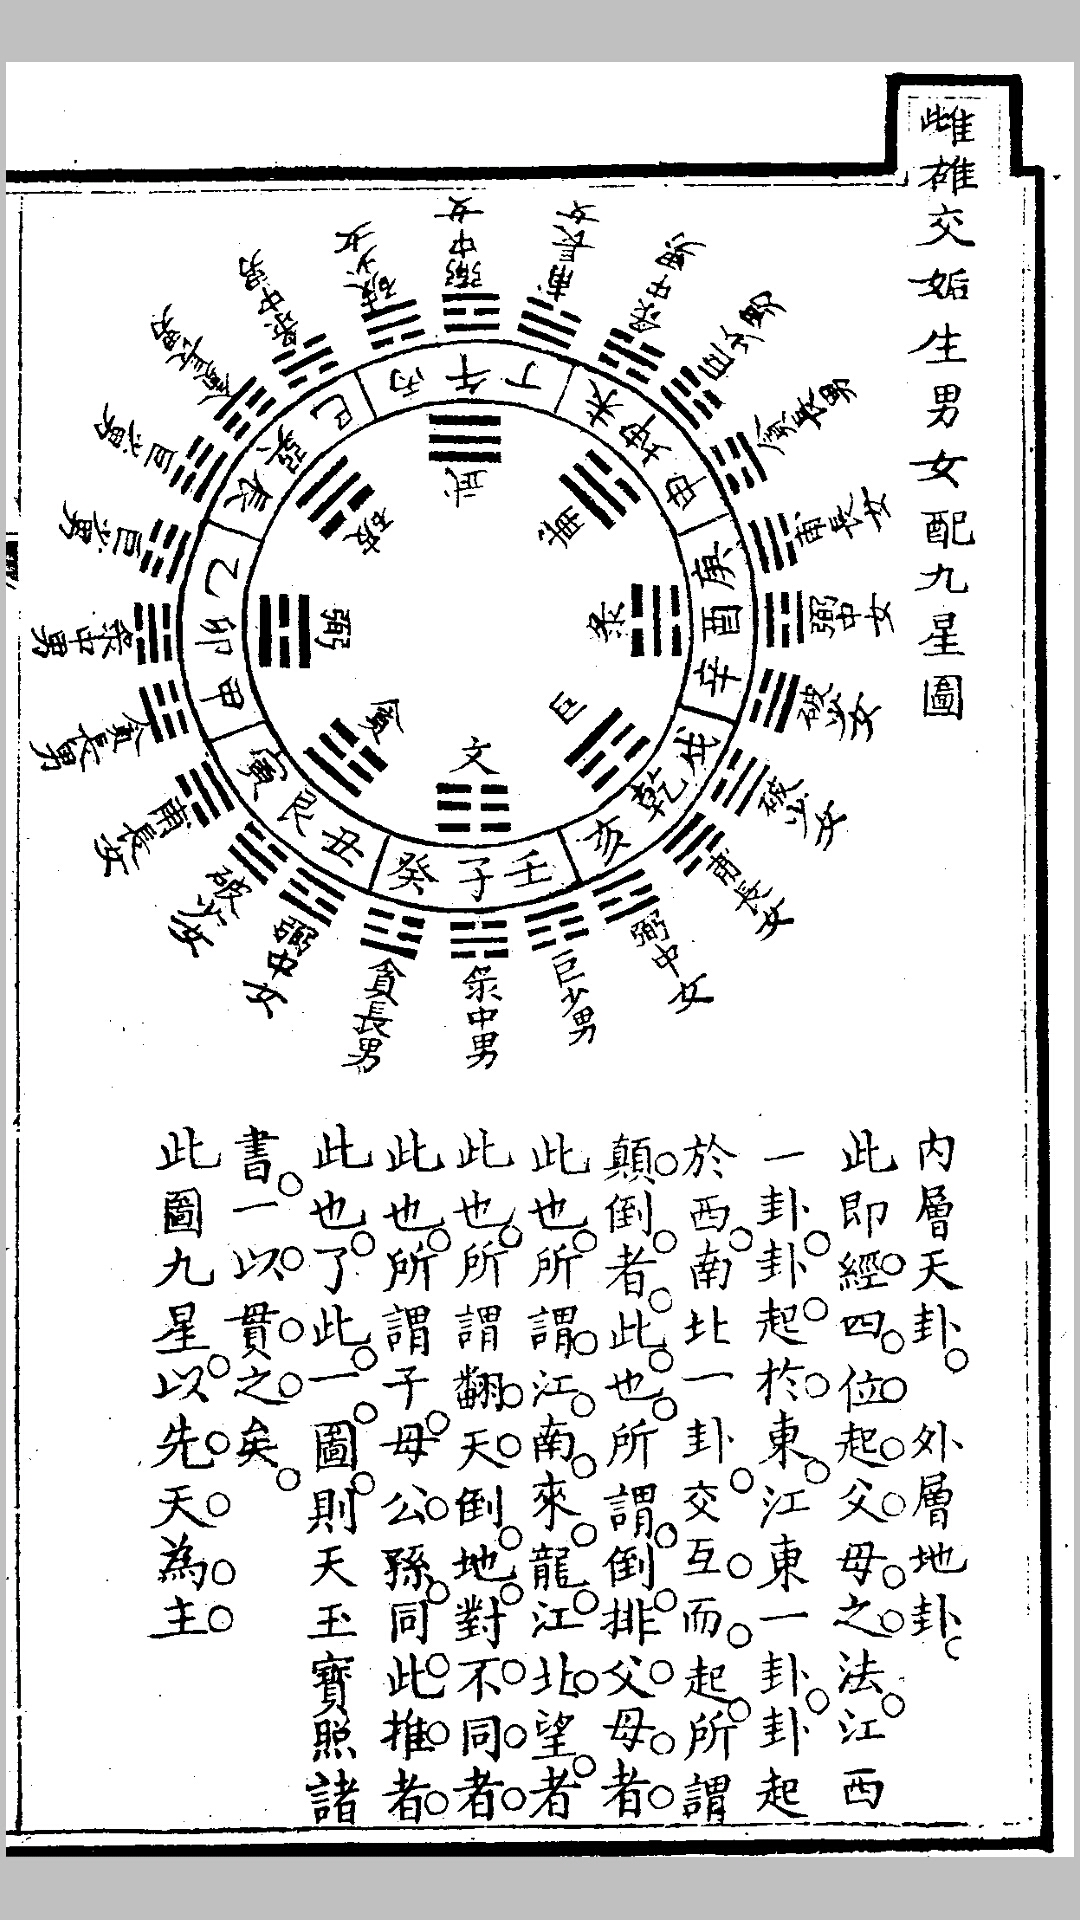 雌雄交姤生男女配九星圖
弼中女
甫長女
彔中男
巨少男
貪長男
甫長女
弼中女
破少女
破少女
甫長女
弼中女
巨少男
彔中男
貪長男
弼中女
破少女
甫長女
貪長男
彔中男
巨少男
巨少男
貪長男
彔中男
破少女
丙午丁
未坤申
庚酉辛
戌乾亥
壬子癸
丑艮寅
甲卯乙
辰巽巳
武
甫
彔
巨
文
貪
弼
破
內層天卦 外層地卦
此即經四位起父母之法江西
一卦卦起於東江東一卦卦起
於西南北一卦交互而起所謂
顛倒者此也所謂倒排父母者
此也所謂江南來龍江北望者
此也所謂翻天倒地對不同者
此也所謂子母公孫同此推者
此也了此一圖則天玉寶照諸
書一以貫之矣
此圖九星以先天為主